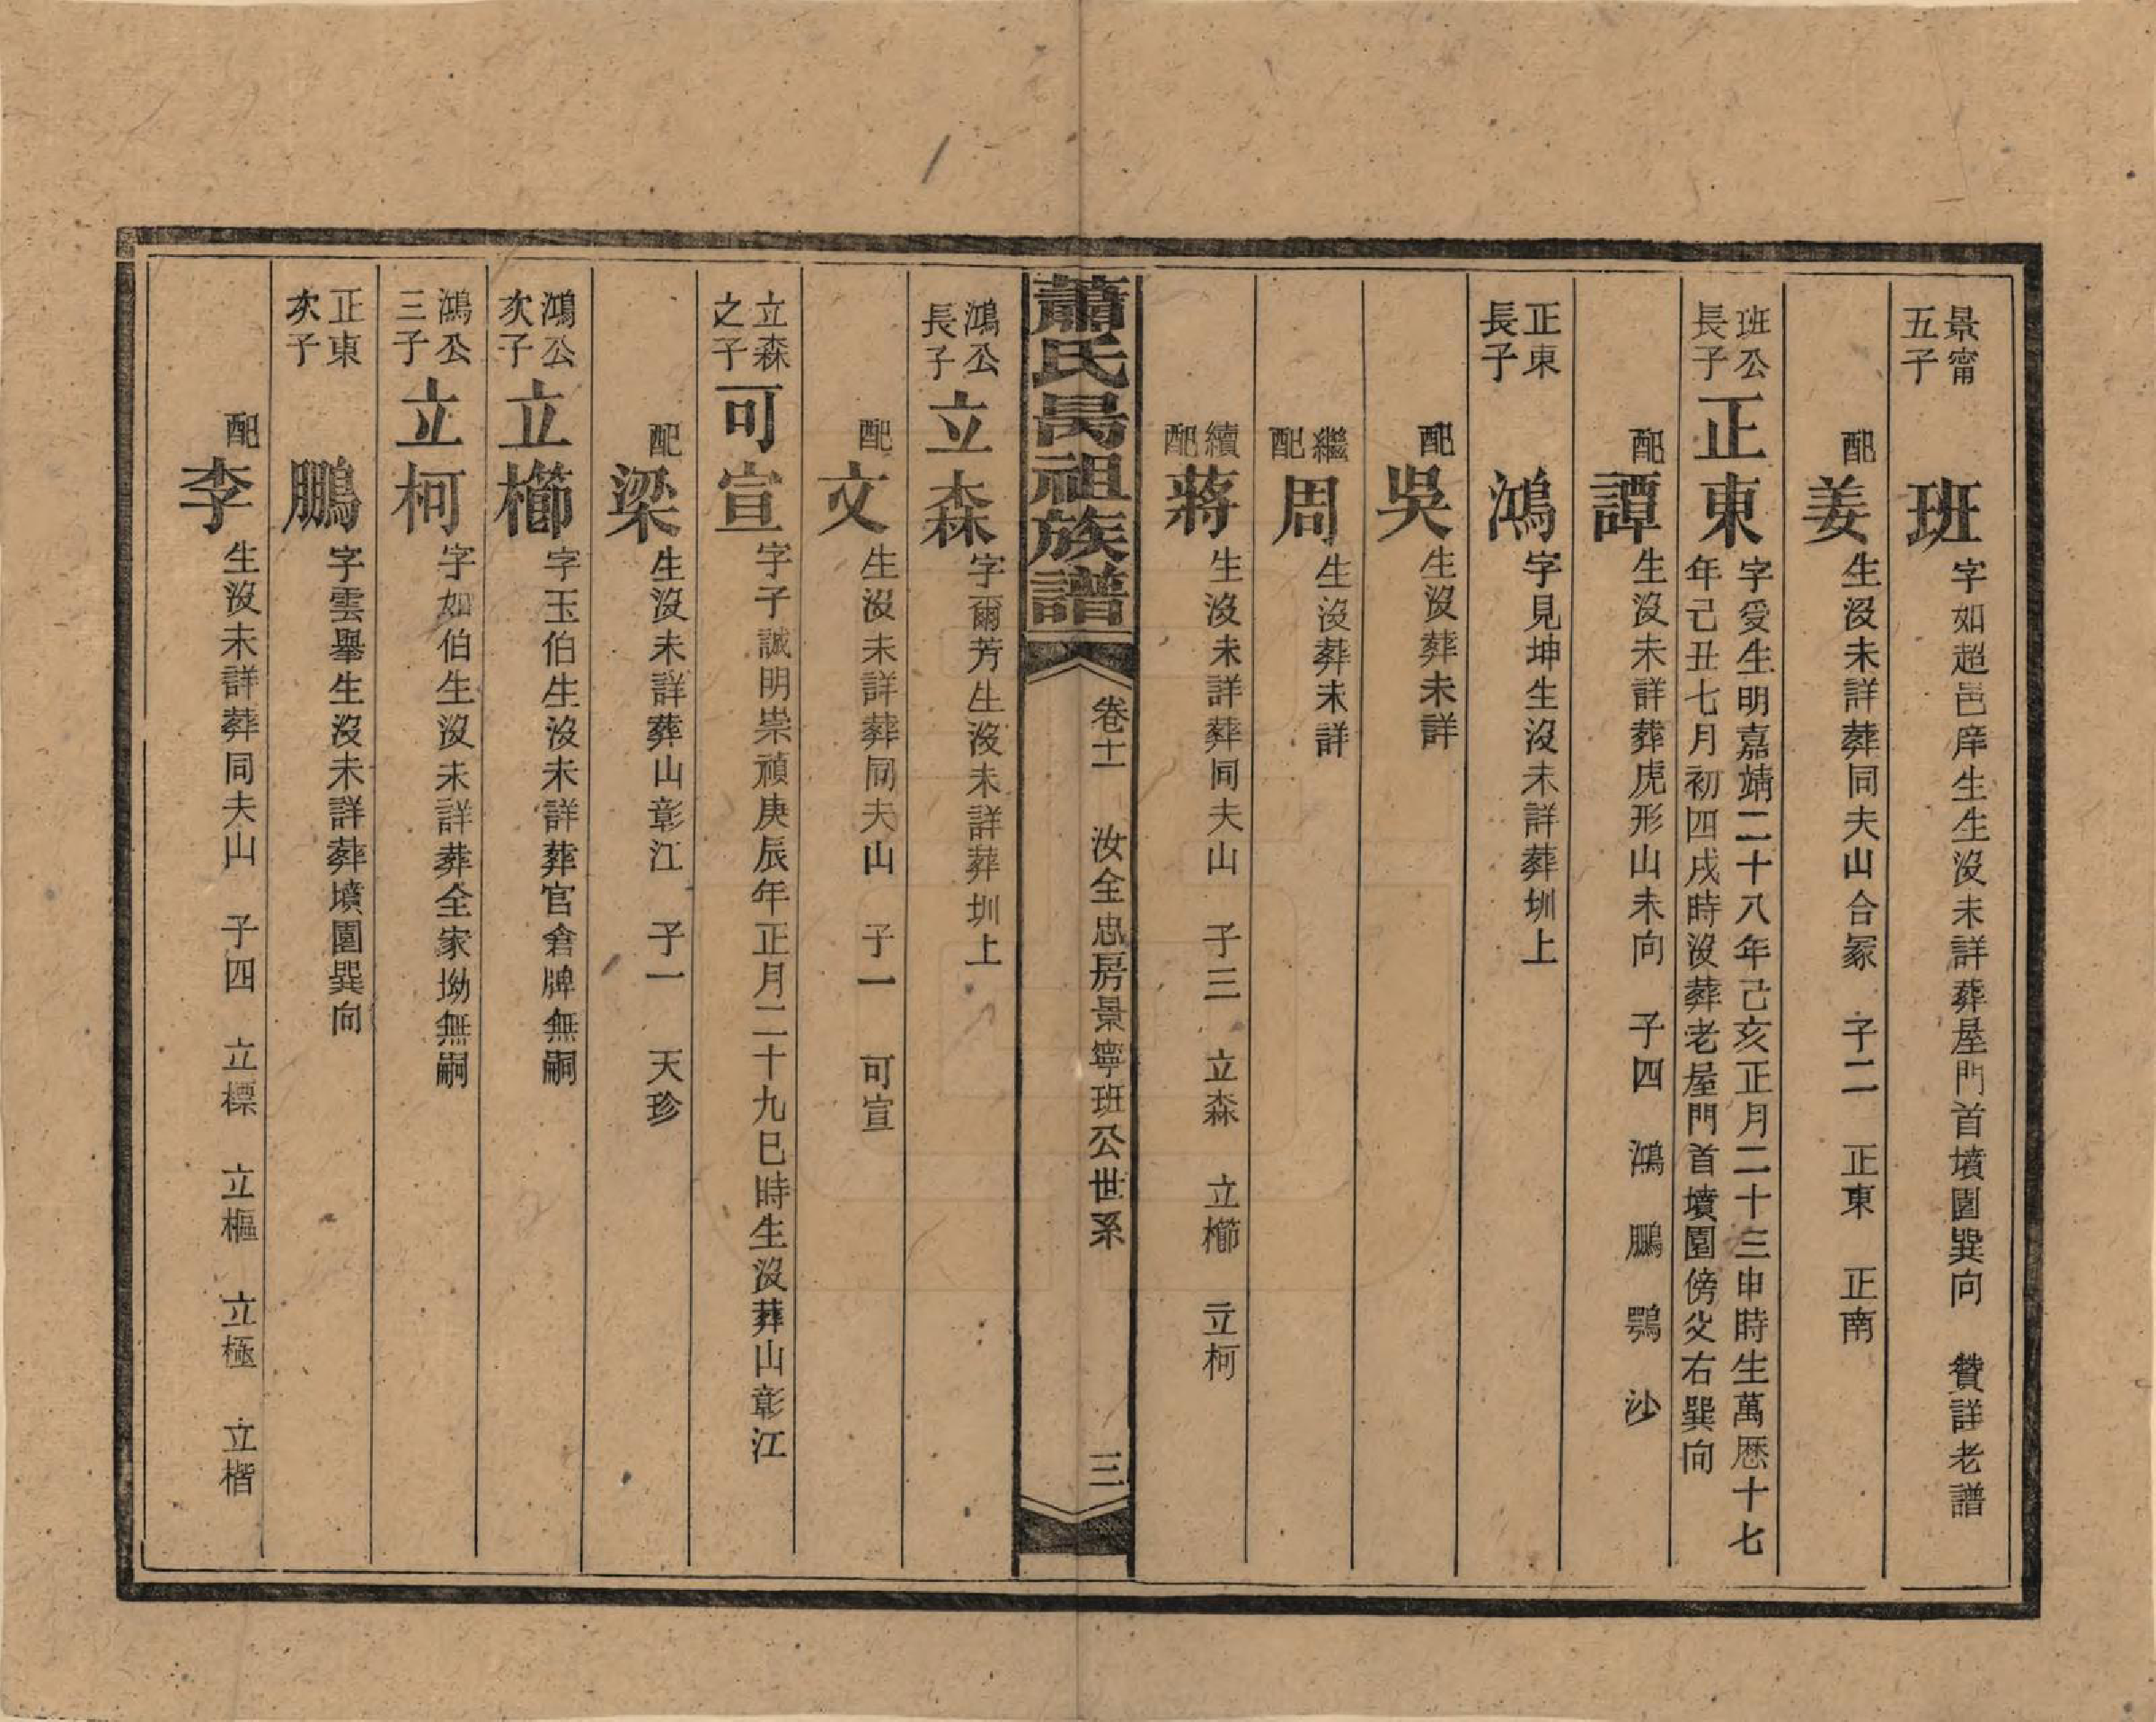 景甯
五子
班
字如超邑庠生生沒未詳葬屋門首墳園巽向 贊詳老譜
配
姜
生沒未詳葬同夫山合冢 子二 正東 正南
班公
長子
正東
字受生明嘉靖二十八年己亥正月二十三申時生萬歷十七
年己丑七月初四戌時沒葬老屋門首墳園傍父右巽向
配
譚
生沒未詳葬虎形山未向 子四 鴻 鵬 鶚 沙
正東
長子
鴻
字見坤生沒未詳葬圳上
配
吳
生沒葬未詳
繼
配
周
生沒葬未詳
續
配
蔣
生沒未詳葬同夫山 子三 立森 立櫛 立柯
蕭氏昺祖族譜
卷十一 汝全忠房景寧班公世系 三
鴻公
長子
立森
字爾芳生沒未詳葬圳上
配
文
生沒未詳葬同夫山 子一 可宣
立森
之子
可宣
字子誠明崇禎庚辰年正月二十九巳時生沒葬山彰江
配
梁
生沒未詳葬山彰江 子一 天珍
鴻公
次子
立櫛
字玉伯生沒未詳葬官倉牌無嗣
鴻公
三子
立柯
字如伯生沒未詳葬全家坳無嗣
正東
次子
鵬
字雲舉生沒未詳葬墳園巽向
配
李
生沒未詳葬同夫山 子四 立標 立樞 立極 立楷